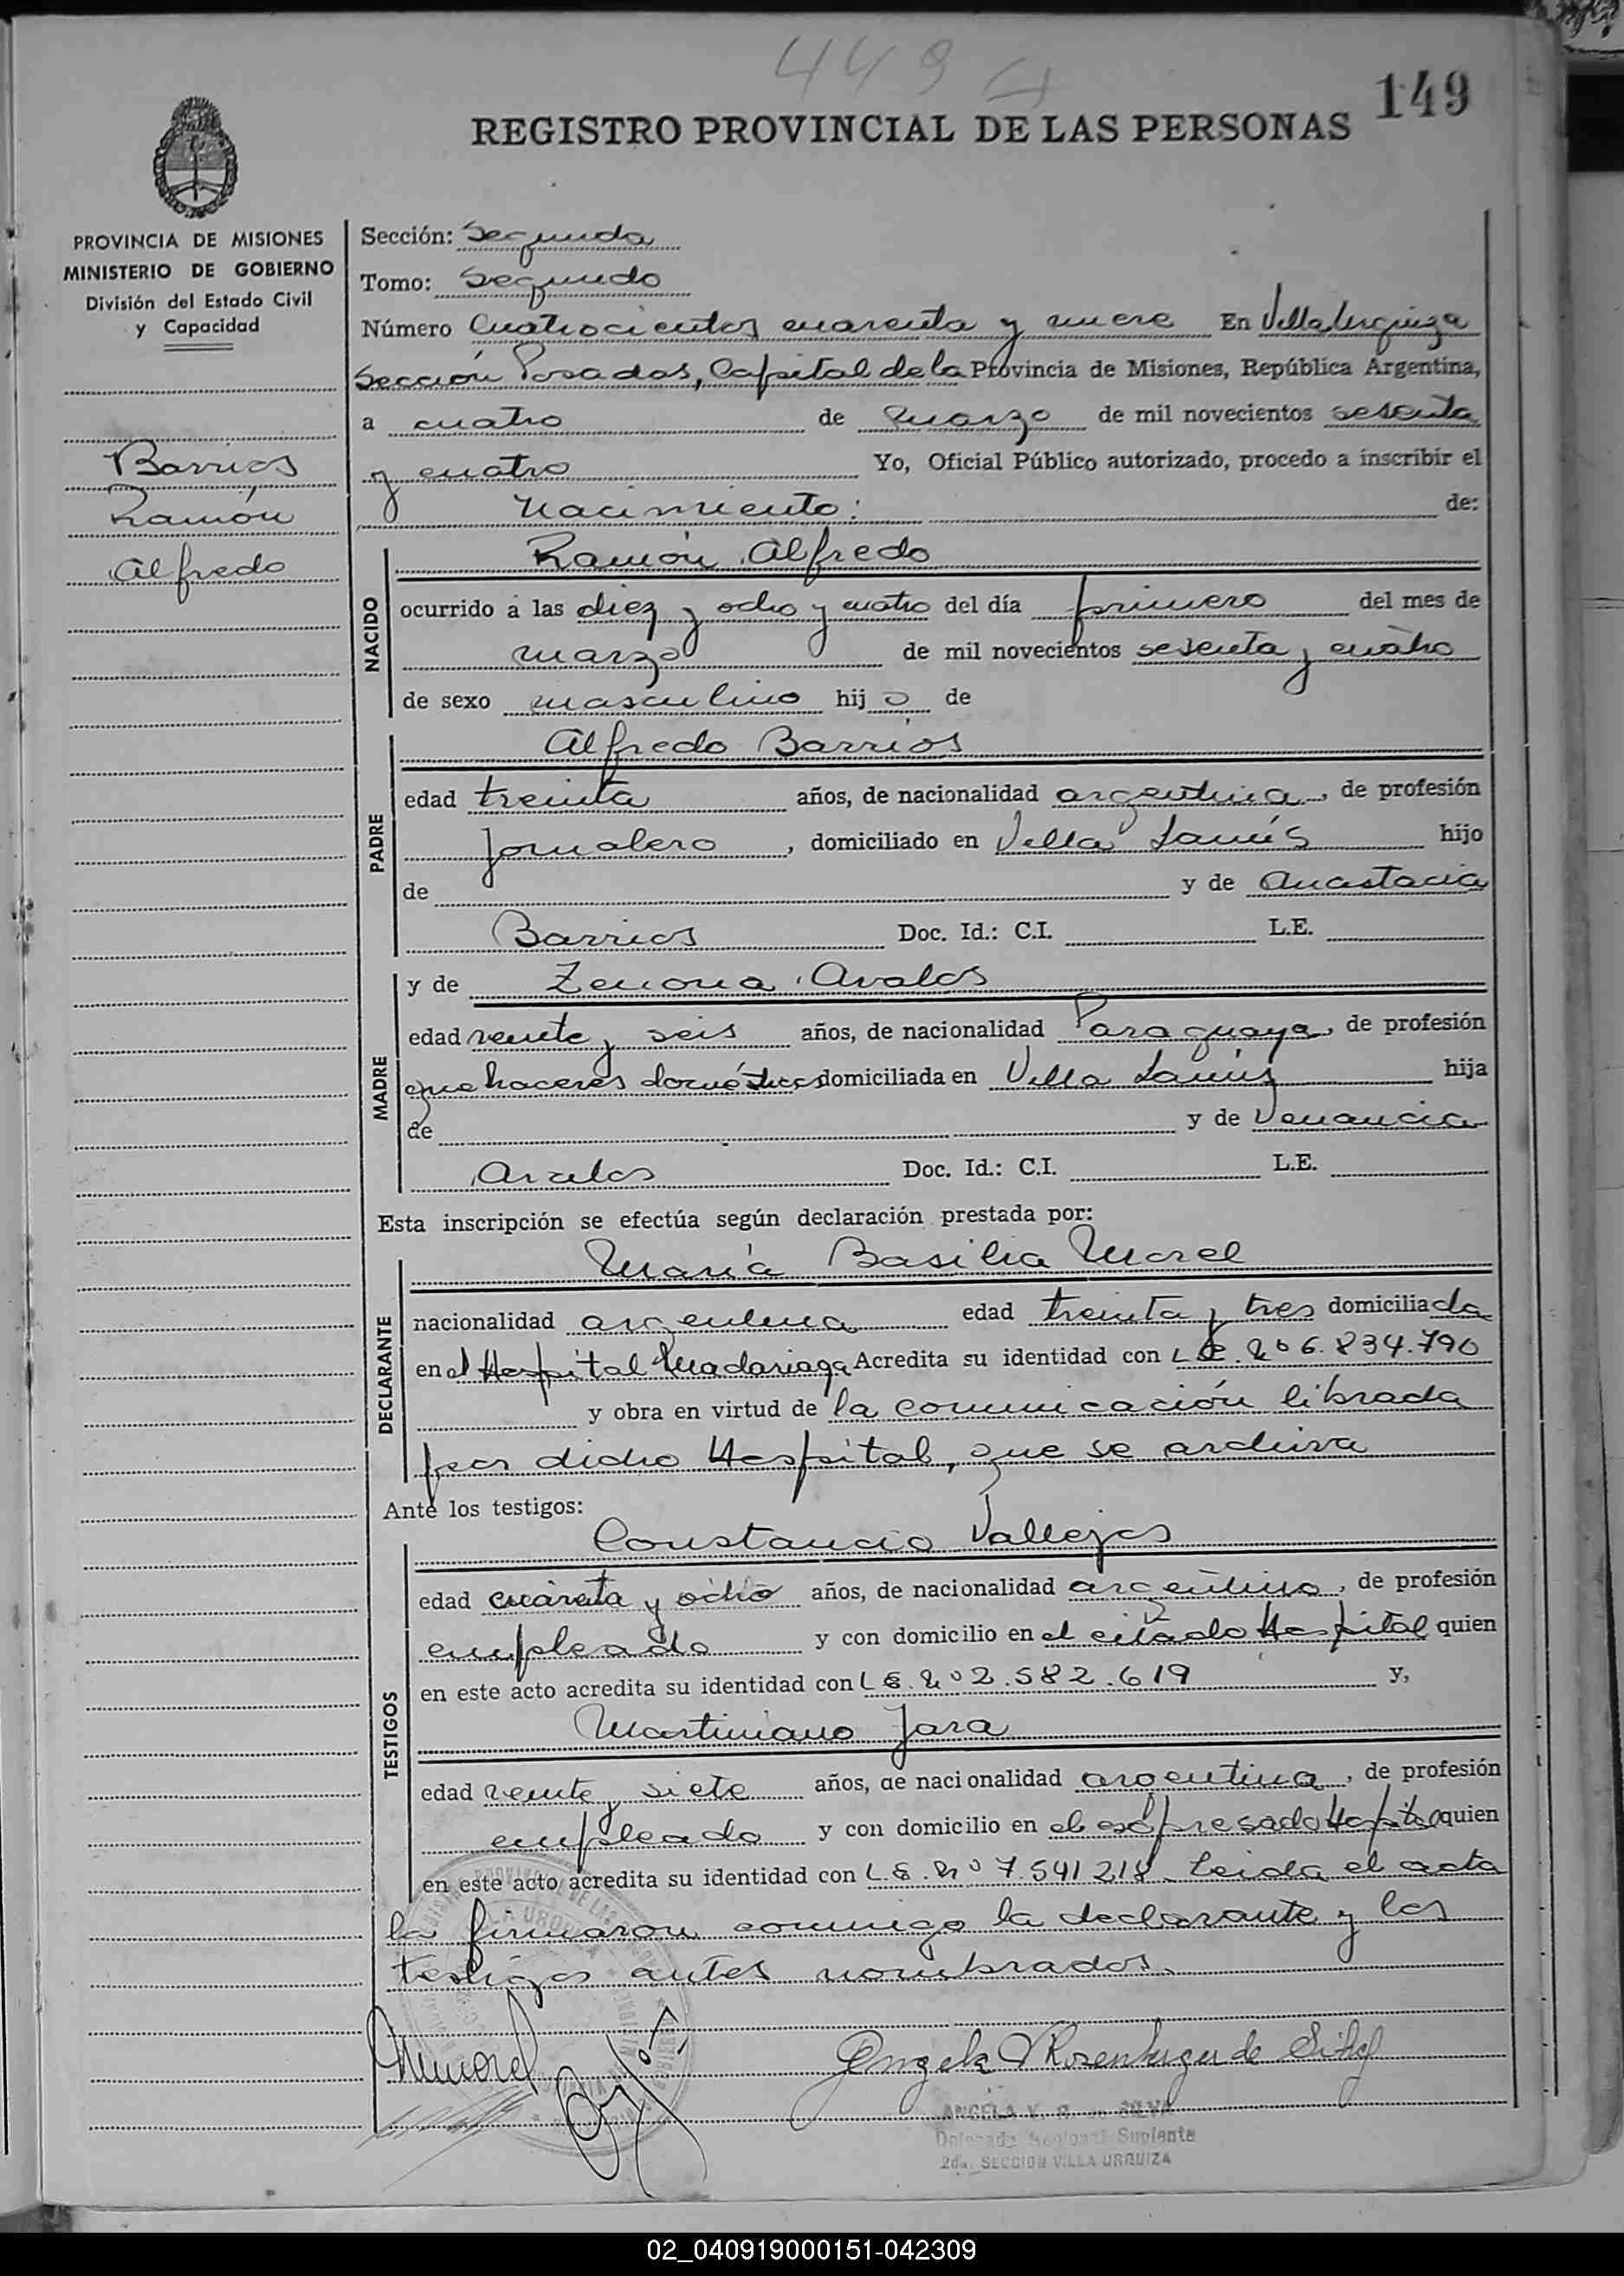 449
149
REGISTRO PROVINCIAL DE LAS PERSONAS
PROVINCIA DE MISIONES
MINISTERIO DE GOBIERNO
División del Estado Civil
y Capacidad
Barrios
Ramón
Alfredo
Sección: Segunda
Tomo: Segundo
Número Cuatrocientos cuarenta y nueve En Villa Urquiza
Sección Posadas, Capital de la Provincia de Misiones, República Argentina,
a cuatro de Marzo de mil novecientos sesenta
y cuatro Yo, Oficial Público autorizado, procedo a inscribir el
Nacimiento: de:
NACIDO
Ramón Alfredo
ocurrido a las diez y ocho y cuatro del día primero del mes de
marzo de mil novecientos sesenta y cuatro
de sexo masculino hij o de
PADRE
Alfredo Barrios
edad treinta años, de nacionalidad argentina, de profesión
Jornalero, domiciliado en Villa Lanús hijo
de y de Anastacia
Barrios Doc. Id.: C.I. L.E.
MADRE
y de Zenona Avalos
edad veinte y seis años, de nacionalidad Paraguaya, de profesión
quehaceres domésticos domiciliada en Villa Lanús hija
de y de Venancia
Avalos Doc. Id.: C.I. L.E.
Esta inscripción se efectúa según declaración prestada por:
DECLARANTE
María Basilia Morel
nacionalidad argentina edad treinta y tres domiciliada
en el Hospital Madariaga Acredita su identidad con L.C. Nº 6.834.790
y obra en virtud de la comunicación librada
por dicho Hospital, que se archiva
Ante los testigos:
TESTIGOS
Constancio Vallejos
edad cuarenta y ocho años, de nacionalidad argentino, de profesión
empleado y con domicilio en el citado Hospital quien
en este acto acredita su identidad con L.E. Nº 2.582.619 y,
Martiniano Jara
edad veinte y siete años, de nacionalidad argentina, de profesión
empleado y con domicilio en el expresado Hospital quien
en este acto acredita su identidad con L.E. Nº 7.541.218. Leida el acta
la firmaron conmigo la declarante y los
testigos antes nombrados.
Angela V Rosenberger de Silva
ANGELA V. R. de SILVA
Delegada Regional Suplente
2da. SECCION VILLA URQUIZA
02_040919000151-042309